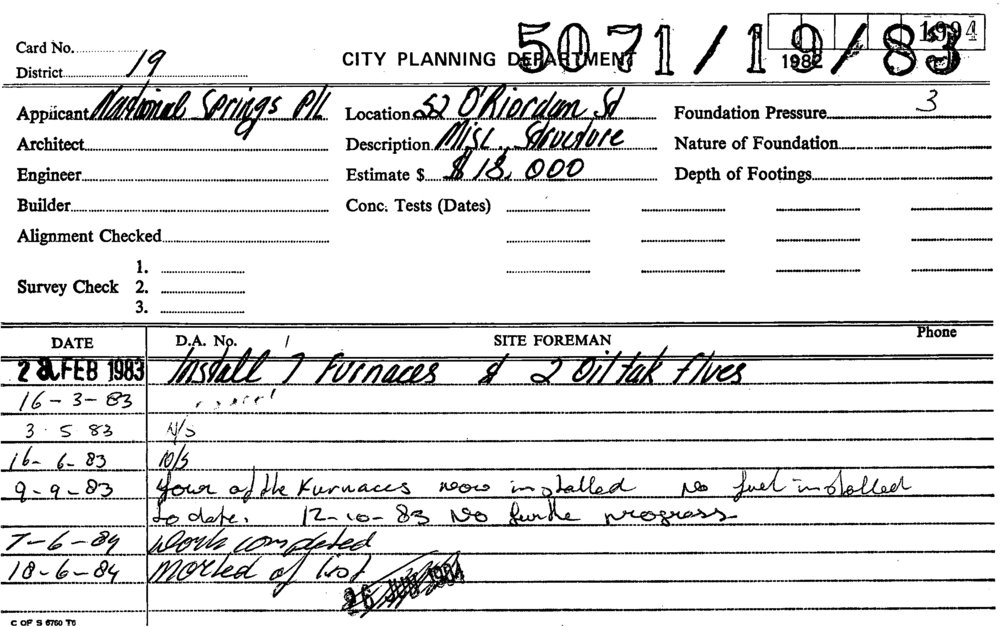 5071/19/83
1994
1982
Card No.
District 19
CITY PLANNING DEPARTMENT
Applicant National Springs P/L
Location 52 O'Riordan St
Foundation Pressure 3
Architect
Description Misc. Structure
Nature of Foundation
Engineer
Estimate $ $18,000
Depth of Footings
Builder
Conc. Tests (Dates)
Alignment Checked
Survey Check 1.
2.
3.
DATE D.A. No. SITE FOREMAN Phone
28 FEB 1983 Install 7 Furnaces & 2 Oil tak flves
16-3-83
3.5 83 N/S
16-6-83 N/S
9-9-83 Four of the Furnaces now installed no fuel installed
to date. 12-10-83 No furthe progress
7-6-84 Work completed
18-6-84 Marked of list
26 JUN 1984
C OF S 6760 T6